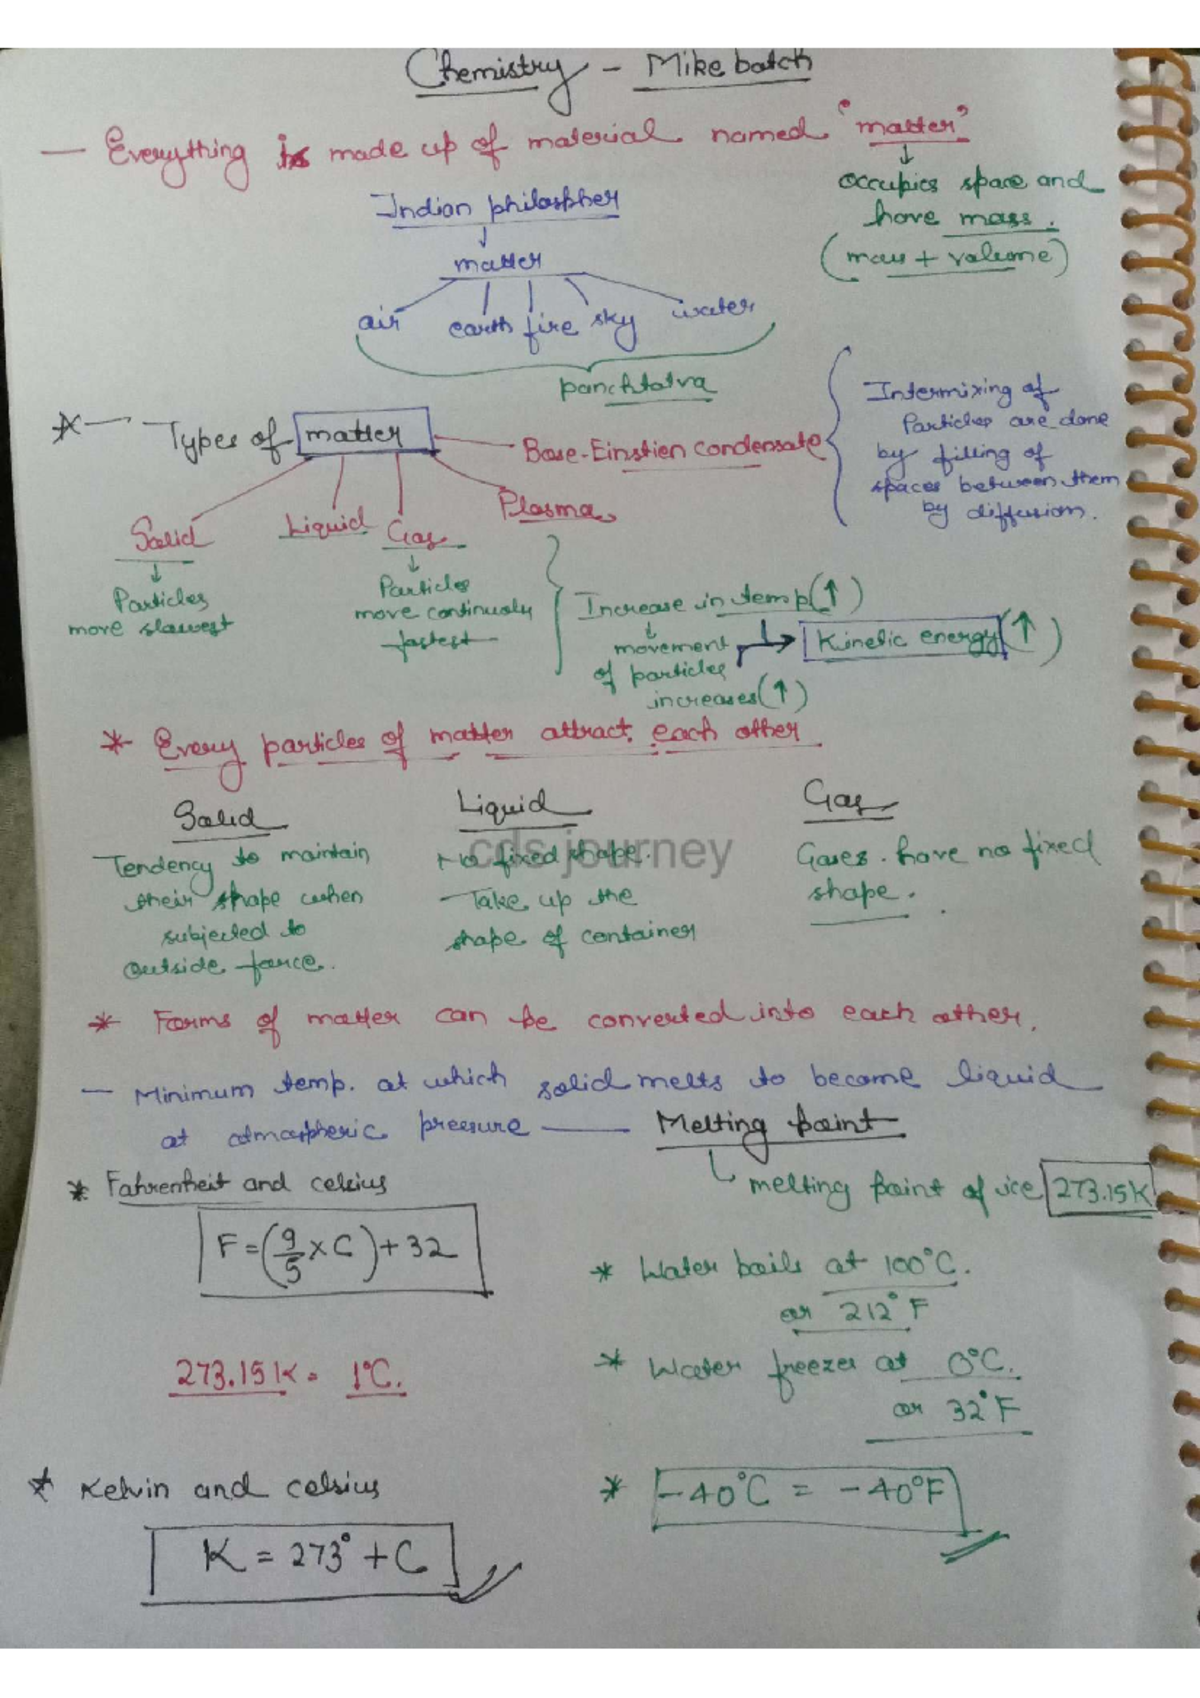 Chemistry - Mike batch
— Everything is made up of material named "matter"
↓
occupies space and
have mass.
(mass + volume)
Indian philospher
↓
matter
air earth fire sky water
panchtatva
* — Types of matter
Bose-Einstien condensate
Intermixing of
Particles are done
by filling of
spaces between them
by diffusion.
Solid Liquid Gas Plasma
↓
Particles
move slowest
↓
Particles
move continuosly
fastest
Increase in temp(↑)
↓
movement
of particles
increases(↑)
Kinetic energy(↑)
* Every particles of matter attract each other
Solid
Tendency to maintain
their shape when
subjected to
outside force.
Liquid
No fixed shape.
- Take up the
shape of container
Gas
Gases have no fixed
shape.
cds journey
* Forms of matter can be converted into each other.
— Minimum temp. at which solid melts to become liquid
at atmospheric pressure — Melting point
melting point of ice 273.15K
* Fahrenheit and celsius
F = (9/5 × C) + 32
273.15K = 1°C.
* Water boils at 100°C.
or 212°F
* Water freezes at 0°C.
or 32°F
* Kelvin and celsius
K = 273° + C
* -40°C = -40°F